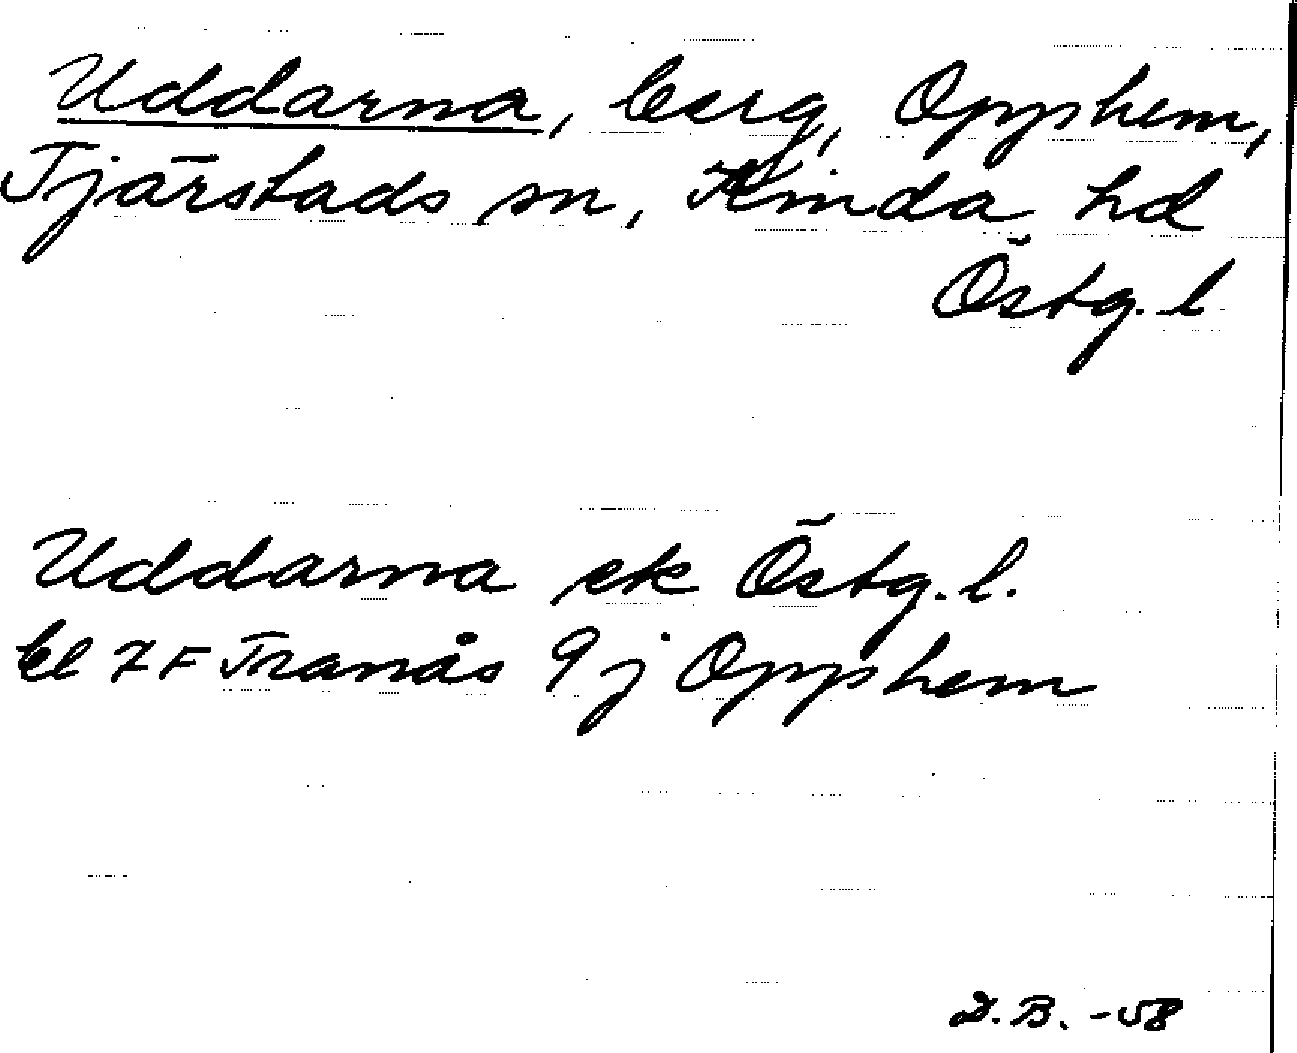 Uddarna, berg, Opphem,
Tjärstads sn, Kinda hd
Östg. l
Uddarna ek Östg. l.
bl 7 F Tranås 9 j Opphem
D. B. -58